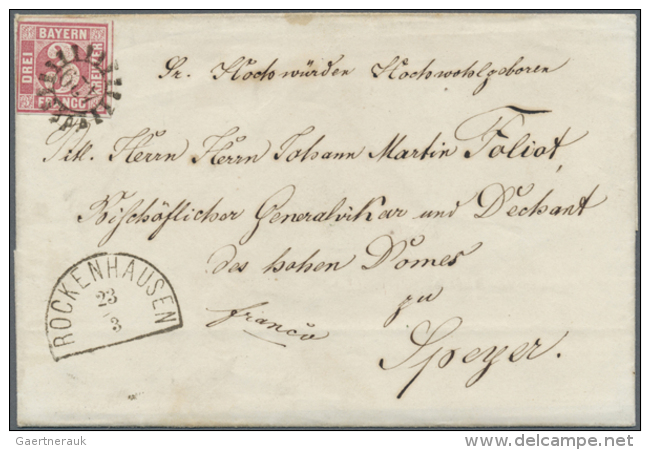 BAYERN
DREI
3
KREUZER
FRANCO
Sr. Hochwürden Hochwohlgeboren
Titl. Herrn Herrn Johann Martin Foliot,
Bischöflicher Generalvikar und Dechant
des hohen Domes
zu
franco
Speyer.
ROCKENHAUSEN
23
/3
Gaertnerauk
www.delcampe.net